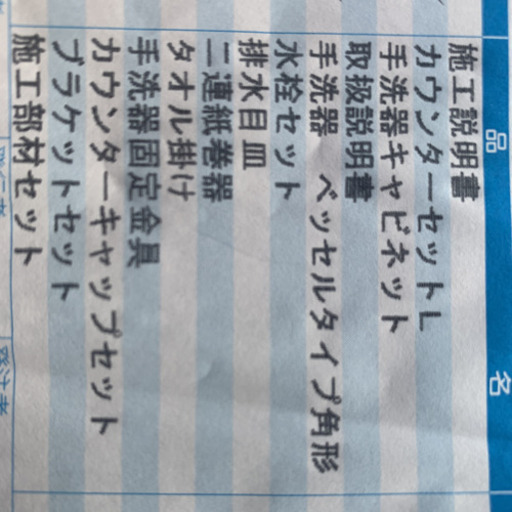 品名
施工説明書
カウンターセットL
手洗器キャビネット
取扱説明書
手洗器 ベッセルタイプ角形
水栓セット
排水目皿
二連紙巻器
タオル掛け
手洗器固定金具
カウンターキャップセット
ブラケットセット
施工部材セット